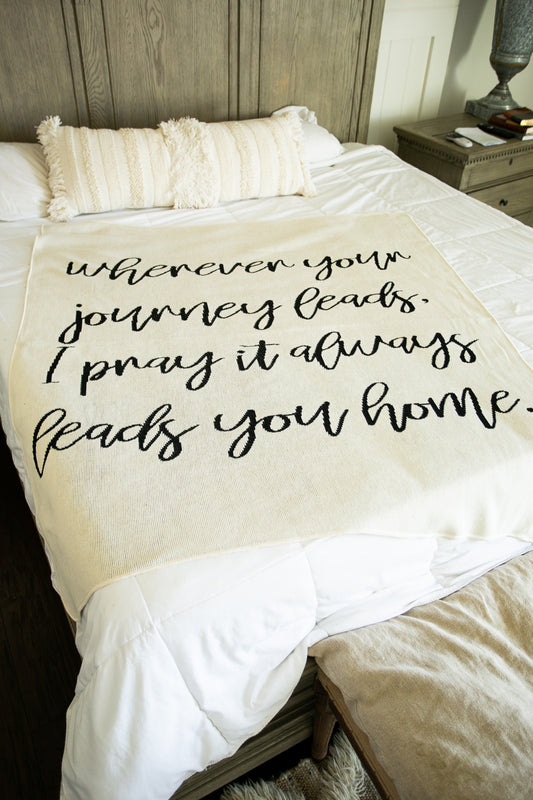 wherever your
journey leads,
I pray it always
leads you home.